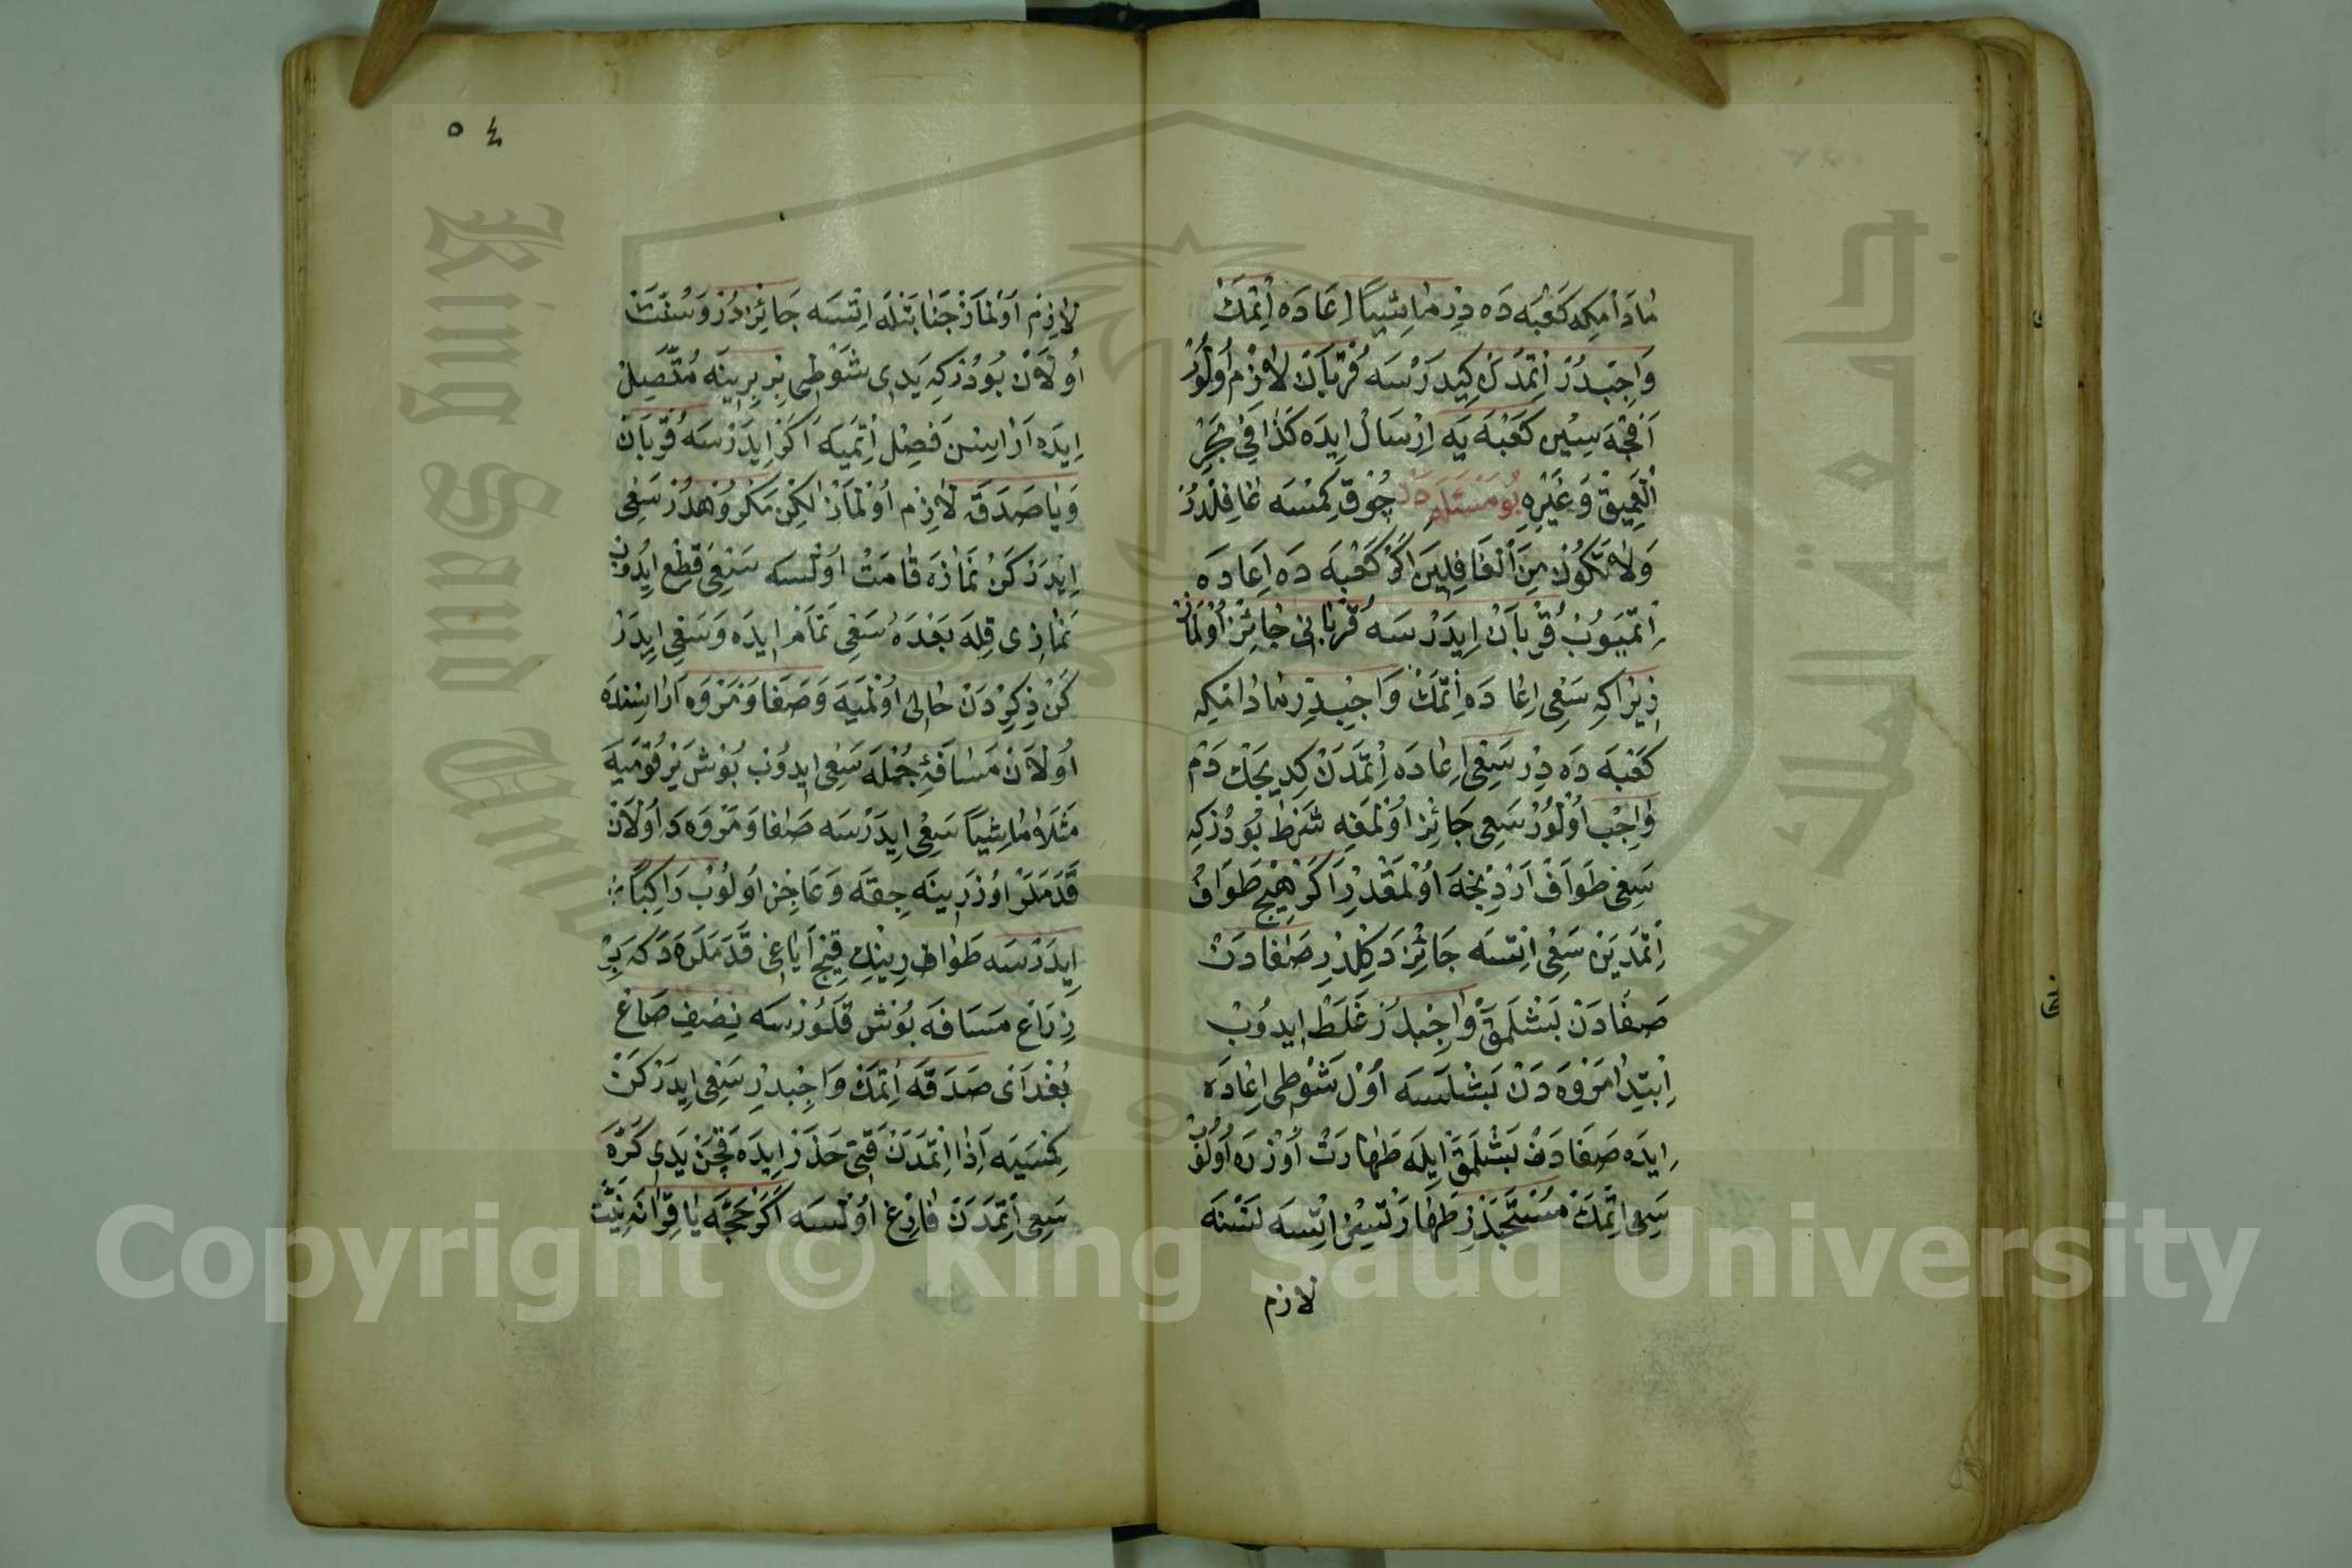 مَادَامْكِه كَعْبَه دَه دِرْ مَاشِيًا اِعَادَه اِتْمَكْ
وَاجِبْدُرْ اِتْمَدَنْ كِيدَرْسَه قُرْبَانْ لَازِمْ اُولُورْ
اَقْچَه سِيْنِ كَعْبَه يَه اِرْسَالْ اِيدَه كَذَا فِي بَحْرِ
الْعَمِيقْ وَغَيْرِهِ بُو مَسْئَلَه دَنْ چُوقْ كِمْسَه غَافِلْدُرْ
وَلَا تَكُونَنَّ مِنَ الْغَافِلِينَ اَكَرْ كَعْبَه دَه اِعَادَه
اِتْمَيُوبْ قُرْبَانْ اِيدَرْسَه قُرْبَانِي جَائِزْ اُولْمَازْ
زِيرَاكِه سَعْيِ اِعَادَه اِتْمَكْ وَاجِبْدِرْ مَادَامْكِه
كَعْبَه دَه دِرْ سَعْيِ اِعَادَه اِتْمَدَنْ كِدِيجَكْ دَمْ
وَاجِبْ اُولُورْ سَعْيِ جَائِزْ اُولْمَغِه شَرْط بُودُرْكِه
سَعْيِ طَوَافْ اَرْدِنْجَه اُولْمَقْدِرْ اَكَرْ هِيچْ طَوَافْ
اِتْمَدَيَنْ سَعْيِ اِتْسَه جَائِزْ دَكِلْدِرْ صَفَادَنْ
صَفَادَنْ بَشْلَمَقْ وَاجِبْدُرْ غَلَطْ اِيدُوبْ
اِبْتِدَا مَرْوَه دَنْ بَشْلَسَه اَوَّلْ شَوْطِي اِعَادَه
اِيدَه صَفَادَنْ بَشْلَمَقْ اِيلَه طَهَارَتْ اُوزْرَه اُولُوبْ
سَعْيِ اِتْمَكْ مُسْتَحَبْدِرْ طَهَارَتْسِيزْ اِتْسَه نَسْنَه
لازم
٥٤
لَازِمْ اُولْمَازْ جَنَابَتْلَه اِتْسَه جَائِزْدُرْ وَسُنَّتْ
اُولَانْ بُودُرْكِه يَدِي شَوْطِي بِرْ بِرِينَه مُتَّصِلْ
اِيدَه اَرَاسِنْ فَصِلْ اِتْمَيَه اَكَرْ اِيدَرْسَه قُرْبَانْ
وَيَا صَدَقَه لَازِمْ اُولْمَازْ لٰكِنْ مَكْرُوهْدُرْ سَعْيِ
اِيدَرْكَنْ نَمَازَه قَامَتْ اُولْسَه سَعْيِ قَطْعْ اِيدُوبْ
نَمَازِي قِلَه بَعْدَهُ سَعْيِ تَمَامْ اِيدَه وَسَعْيِ اِيدَرْ
كَنْ ذِكِرْدَنْ خَالِي اُولْمَيَه وَصَفَا وَمَرْوَه اَرَاسِنْدَه
اُولَانْ مَسَافَهِ جُمْلَه سَعْيِ اِيدُوبْ بُوشْ يَرْ قُومَيَه
مَثَلَا مَاشِيًا سَعْيِ اِيدَرْسَه صَفَا وَمَرْوَه دَ اُولَانْ
قَدَمَلَرْ اُوزَرِينَه چِقَه وَعَاجِزْ اُولُوبْ رَاكِبًا
اِيدَرْسَه طَوَارِينِكْ قِيچْ اَيَاغِي قَدَمَلَرَه دَكَه بِرْ
ذِرَاعْ مَسَافَه بُوشْ قَلُورْسَه نِصْفِ صَاعْ
بُغْدَاىْ صَدَقَه اِتْمَكْ وَاجِبْدِرْ سَعْيِ اِيدَرْكَنْ
كِمْسَيَه اَذَا اِتْمَدَنْ قَتِي حَذَرْ اِيدَه قَچَنْ يَدِي كَرَّه
سَعْيِ اِتْمَدَنْ فَارِغْ اُولْسَه اَكَرْ حَجَّه يَا قِرَانَه نِيَّتْ